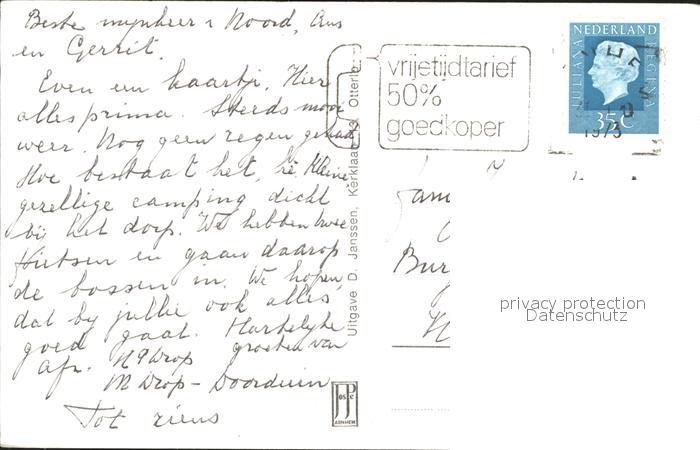 Beste mijnheer v Noord, Aus
en Gerrit.
Even een kaartje. Hier
alles prima. Steeds mooi
weer. Nog geen regen gehad
Hoe bestaat het, hè. Kleine
gezellige camping dicht
bij het dorp. We hebben twee
fietsen en gaan daarop
de bossen in. We hopen
dat bij jullie ook alles
goed gaat. Hartelijke
groeten van
Afz. Drop
M Drop-Doorduin
Tot ziens
Uitgave D. Janssen, Kerklaan Otterlo
JosPe
ARNHEM
vrijetijdtarief
50%
goedkoper
NEDERLAND
JULIANA REGINA
35c
1973
Fam
Bur
privacy protection
Datenschutz